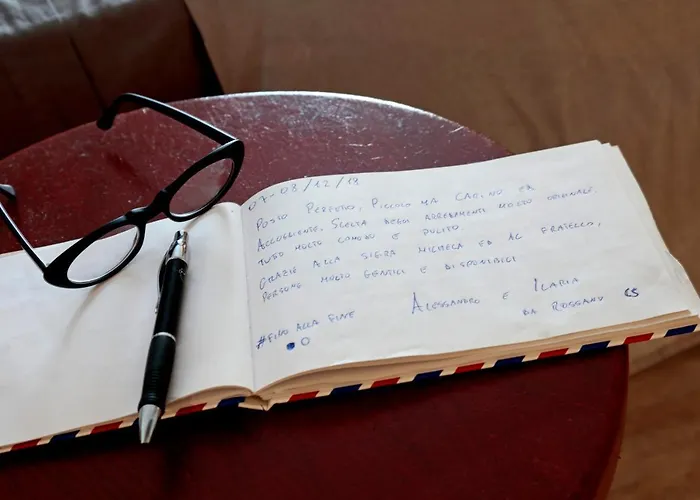 07-08/12/18
POSTO PERFETTO, PICCOLO MA CARINO ED
ACCOGLIENTE. SCELTA DEGLI ARREDAMENTI MOLTO ORIGINALE.
TUTTO MOLTO COMODO E PULITO
GRAZIE ALLA SIG.RA MICHELA ED AL FRATELLO,
PERSONE MOLTO GENTILI E DISPONIBILI
ALESSANDRO E ILARIA
DA ROSSANO CS
#FINO ALLA FINE